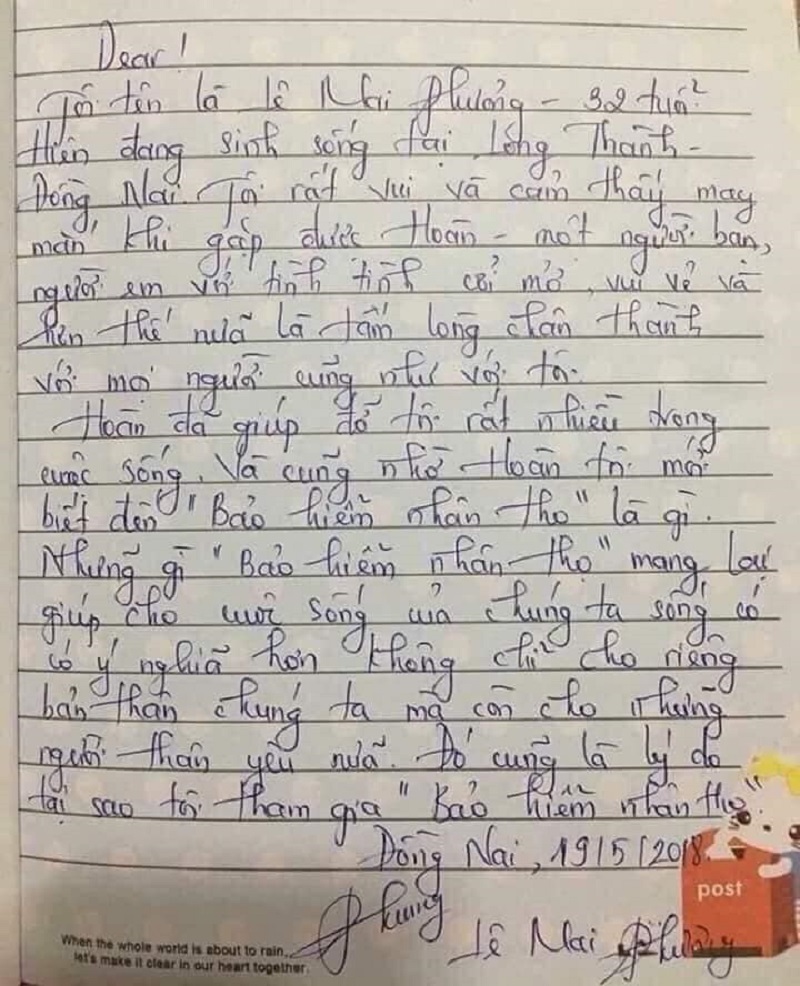 Dear!
Tôi tên là Lê Mai Phương - 32 tuổi
Hiện đang sinh sống tại Long Thành -
Đồng Nai. Tôi rất vui và cảm thấy may
mắn khi gặp được Hoàn - một người bạn,
người em với tính tình cởi mở, vui vẻ và
hơn thế nữa là tấm lòng chân thành
với mọi người cũng như với tôi.
Hoàn đã giúp đỡ tôi rất nhiều trong
cuộc sống. Và cũng nhờ Hoàn tôi mới
biết đến "Bảo hiểm nhân thọ" là gì.
Những gì "Bảo hiểm nhân thọ" mang lại
giúp cho cuộc sống của chúng ta sống có
có ý nghĩa hơn không chỉ cho riêng
bản thân chúng ta mà còn cho những
người thân yêu nữa. Đó cũng là lý do
tại sao tôi tham gia "Bảo hiểm nhân thọ".
Đồng Nai, 19/5/2018.
post
Phương
Lê Mai Phương
When the whole world is about to rain,
let's make it clear in our heart together.